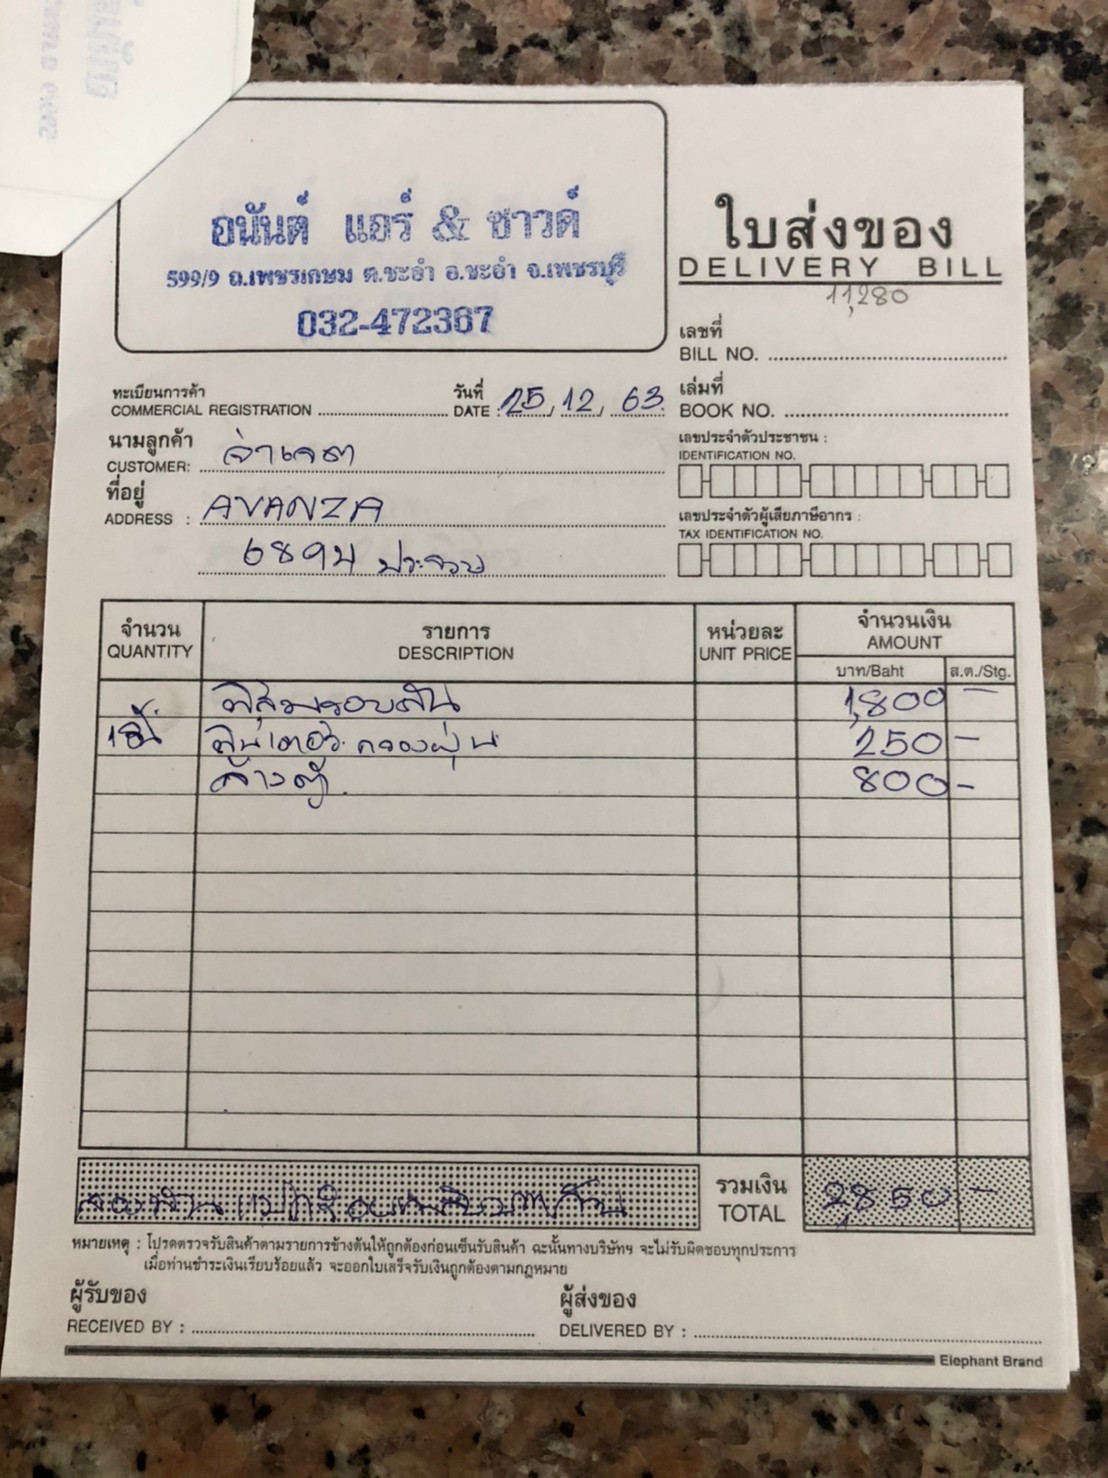 อนันต์ แอร์ & ซาวด์
599/9 ถ.เพชรเกษม ต.ชะอำ อ.ชะอำ จ.เพชรบุรี
032-472367
ใบส่งของ
DELIVERY BILL
11,280
เลขที่
BILL NO.
ทะเบียนการค้า
COMMERCIAL REGISTRATION
วันที่
DATE : 25 / 12 / 63
เล่มที่
BOOK NO.
นามลูกค้า
CUSTOMER: จ่าเจต
เลขประจำตัวประชาชน :
IDENTIFICATION NO.
ที่อยู่
ADDRESS : AVANZA
เลขประจำตัวผู้เสียภาษีอากร :
TAX IDENTIFICATION NO.
ประจวบ
จำนวน รายการ หน่วยละ จำนวนเงิน
QUANTITY DESCRIPTION UNIT PRICE AMOUNT
บาท/Baht ส.ต./Stg.
ฟิล์มรอบคัน 1,800 -
250 -
ล้างตู้ 800 -
รวมเงิน
TOTAL 2,850 -
หมายเหตุ : โปรดตรวจรับสินค้าตามรายการข้างต้นให้ถูกต้องก่อนเซ็นรับสินค้า ฉะนั้นทางบริษัทฯ จะไม่รับผิดชอบทุกประการ
เมื่อท่านชำระเงินเรียบร้อยแล้ว จะออกใบเสร็จรับเงินถูกต้องตามกฎหมาย
ผู้รับของ
RECEIVED BY :
ผู้ส่งของ
DELIVERED BY :
Elephant Brand